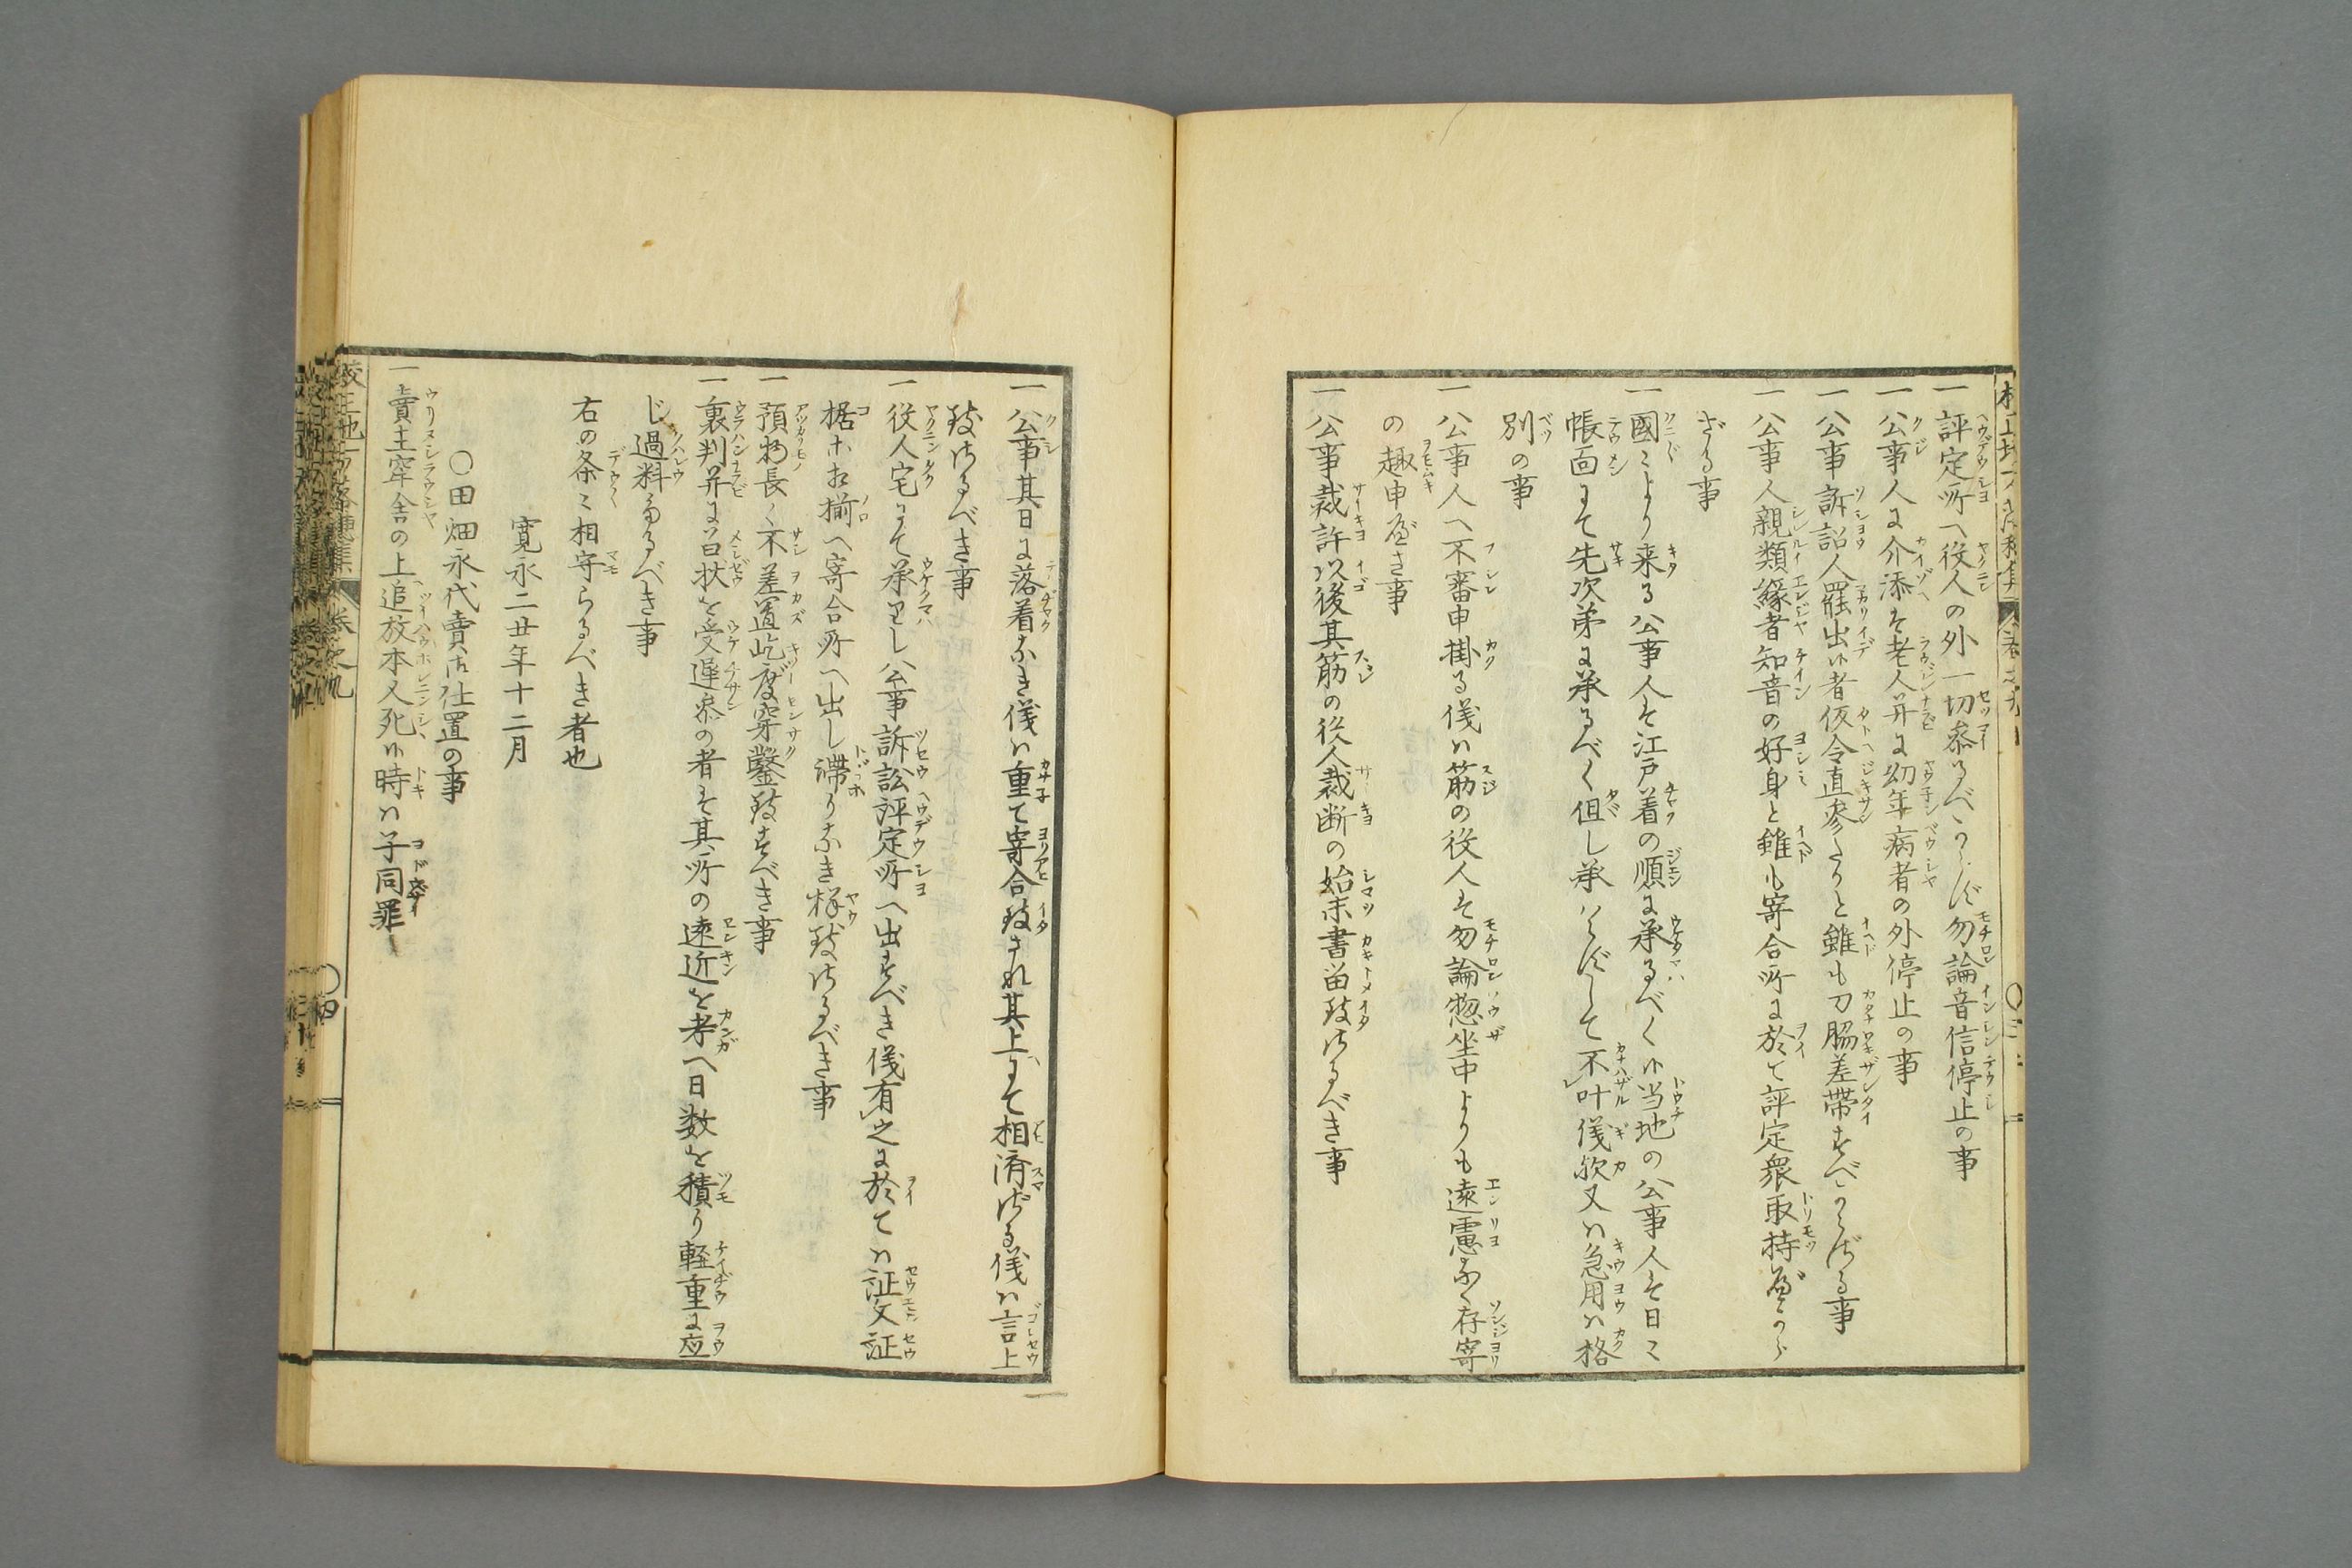 一評定所へ役人の外一切参るべからず勿論音信停止の事
一公事人に介添は老人并に幼年病者の外停止の事
一公事訴訟人罷出候者仮令直参たりと雖も刀脇差帯すべからざる事
一公事人親類縁者知音の好身と雖も寄合所に於て評定衆取持べから
ざる事
一國〻より来る公事人は江戸着の順に承るべく候当地の公事人は日〻
帳面にて先次第に承るべく但し承はらずして不叶儀歟又ハ急用ハ格
別の事
一公事人へ不審申掛る儀ハ筋の役人は勿論惣坐中よりも遠慮なく存寄
の趣申べき事
一公事裁許以後其筋の役人裁断の始末書留致さるべき事
一公事其日に落着なき儀ハ重て寄合致され其上にて相済ざる儀ハ言上
致さるべき事
一役人宅にて承りし公事訴訟評定所へ出すべき儀有之に於てハ証文証
拠ホお揃へ寄合所へ出し滞りなき様致さるべき事
一預物長く不差置屹度穿鑿致すべき事
一裏判并に召状を受遅参の者は其所の遠近を考へ日数を積り軽重に応
じ過料なるべき事
右の条〻相守らるべき者也
寛永二廿年十二月
〇田畑永代賣御仕置の事
一賣主窂舎の上追放本人死候時ハ子同罪